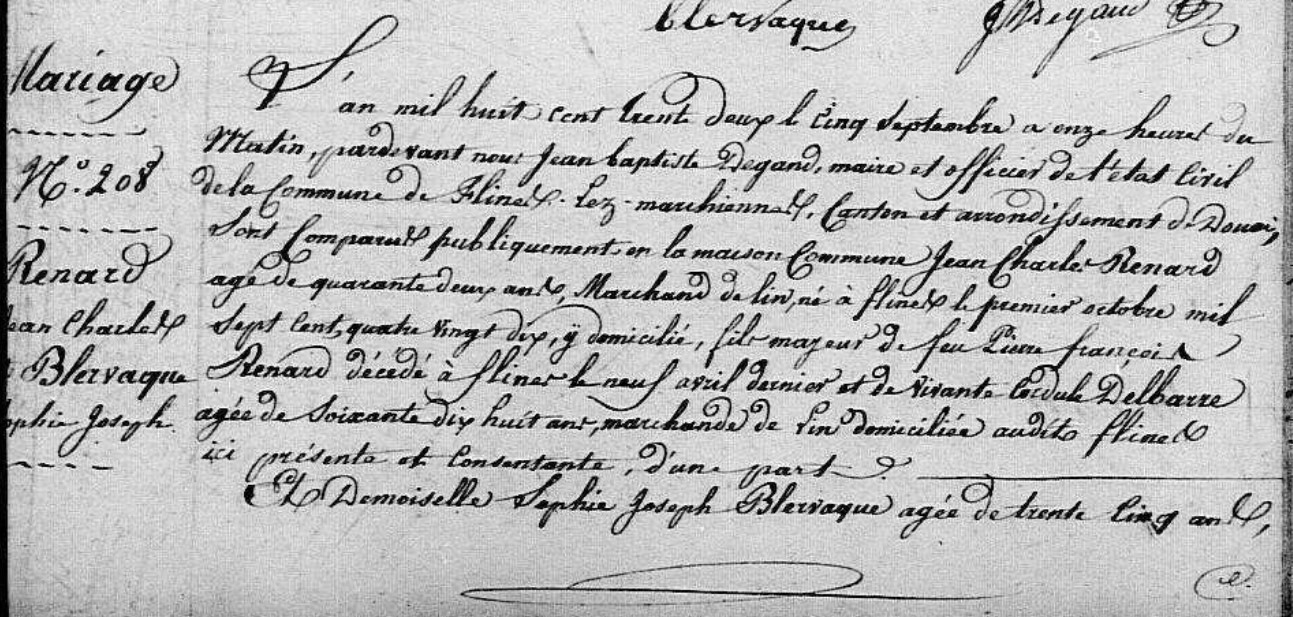 Blervaque Degand
Mariage
N.° 208
Renard
Jean Charles
et Blervaque
Sophie Joseph
L'an mil huit cent trente deux l cinq septembre a onze heures du
Matin, pardevant nous Jean baptiste Degand, maire et officier de l'état Civil
de la Commune de Flines-lez-marchiennes, Canton et arrondissement de Douai,
Sont Comparus publiquement en la maison Commune Jean Charles Renard
agé de quarante deux ans, Marchand de lin, né à flines le premier octobre mil
Sept Cent, quatre vingt dix, y domicilié, fils majeur de feu Pierre françois
Renard décédé à flines le neuf avril dernier et de vivante Cordule Delbarre
agée de Soixante dix huit ans, marchande de Lin domiciliée audit flines
ici présente et Consentante, d'une part
Et Demoiselle Sophie Joseph Blervaque agée de trente Cinq ans,